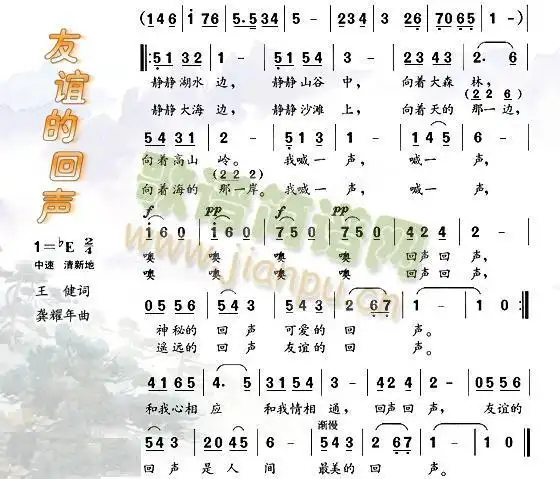 友谊的回声
1=♭E 2/4
中速 清新地
王 健词
龚耀年曲
(146 | i 76 | 5·534 | 5 - | 234 | 3 26 | 7065 | 1 - )
51 32 | 1 - | 51 54 | 3 - | 23 43 | 2· 6
静静湖水 边， 静静山谷 中， 向着大森 林，
(2 2 6)
静静大海 边， 静静沙滩 上， 向着天的 那一边，
54 31 | 2 - | 513 | 1 - | 145 | 6 -
向着高山 岭。 我喊一 声， 喊一 声，
(2 2 2)
向着海的 那一岸。我喊一 声， 喊一 声，
f pp f pp
i60 | i60 | 750 | 750 | 424 | 2 -
噢 噢 噢 噢 回声回 声，
噢 噢 噢 噢 回声回 声，
05 56 | 543 | 543 | 2 67 | 1 - | 1 0
神秘的 回 声 可爱的 回 声。
遥远的 回 声 友谊的 回 声。
41 65 | 4· 5 | 31 54 | 3 - | 424 | 2- | 05 56
和我心相 应 和我情相 通，回声回 声， 友谊的
渐慢
543 | 20 45 | 6 - | 543 | 2 67 | 1 - | 1 0
回 声 是人 间 最美的 回 声。
歌谱简谱网
www.jianpu.cn